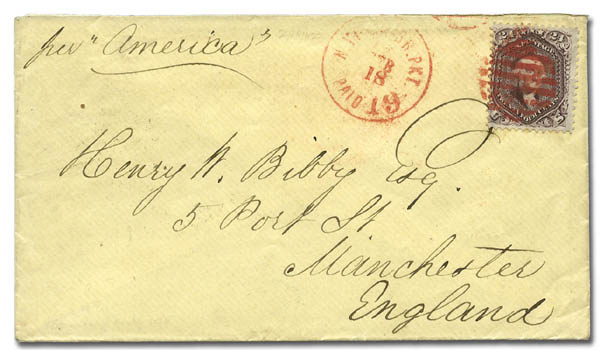 per "America"
N. BR. PKT.
18
PAID
19
24 24
Henry W. Bibby Esq.
5 Port St
Manchester
England